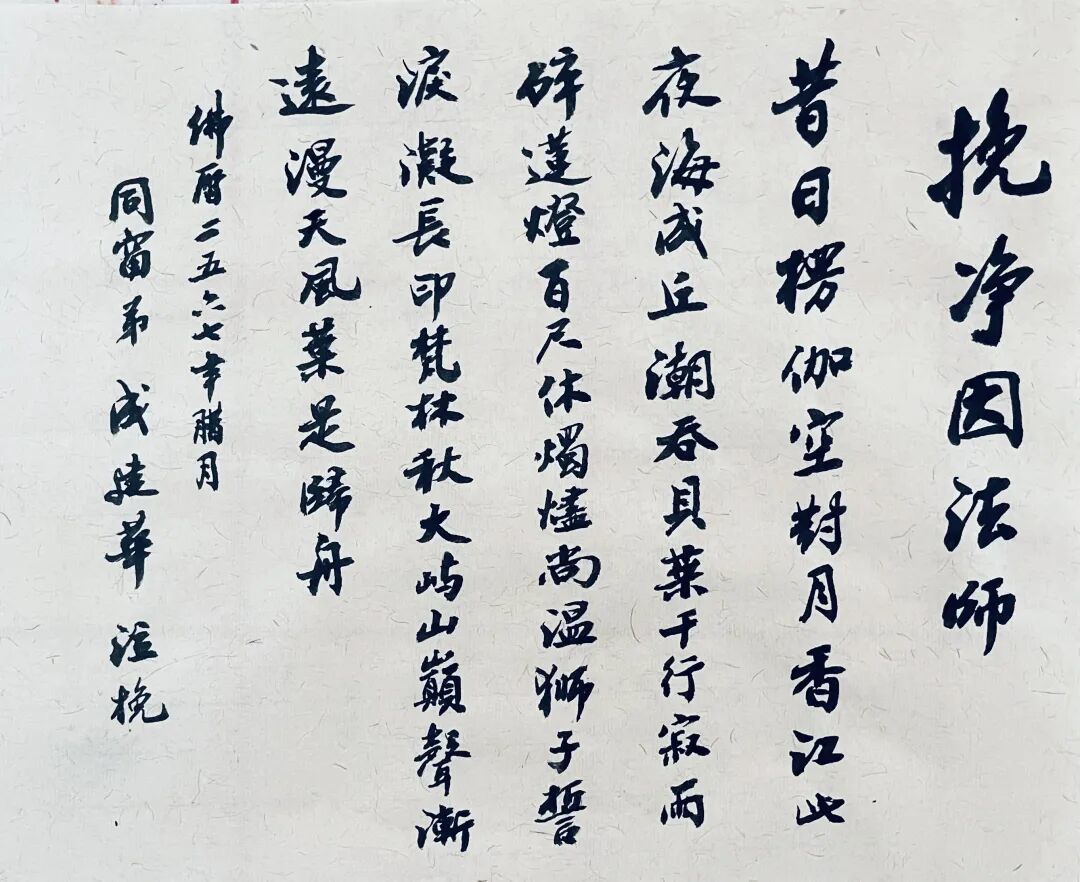 挽净因法师
昔日楞伽空對月香江此
夜海成丘潮吞貝葉千行寂雨
碎蓮燈百尺休燭燼尚温獅子誓
淚凝長印梵林秋大屿山巔聲漸
遠漫天風葉是歸舟
佛曆二五六七年臘月
同窗弟 成建華 泣挽